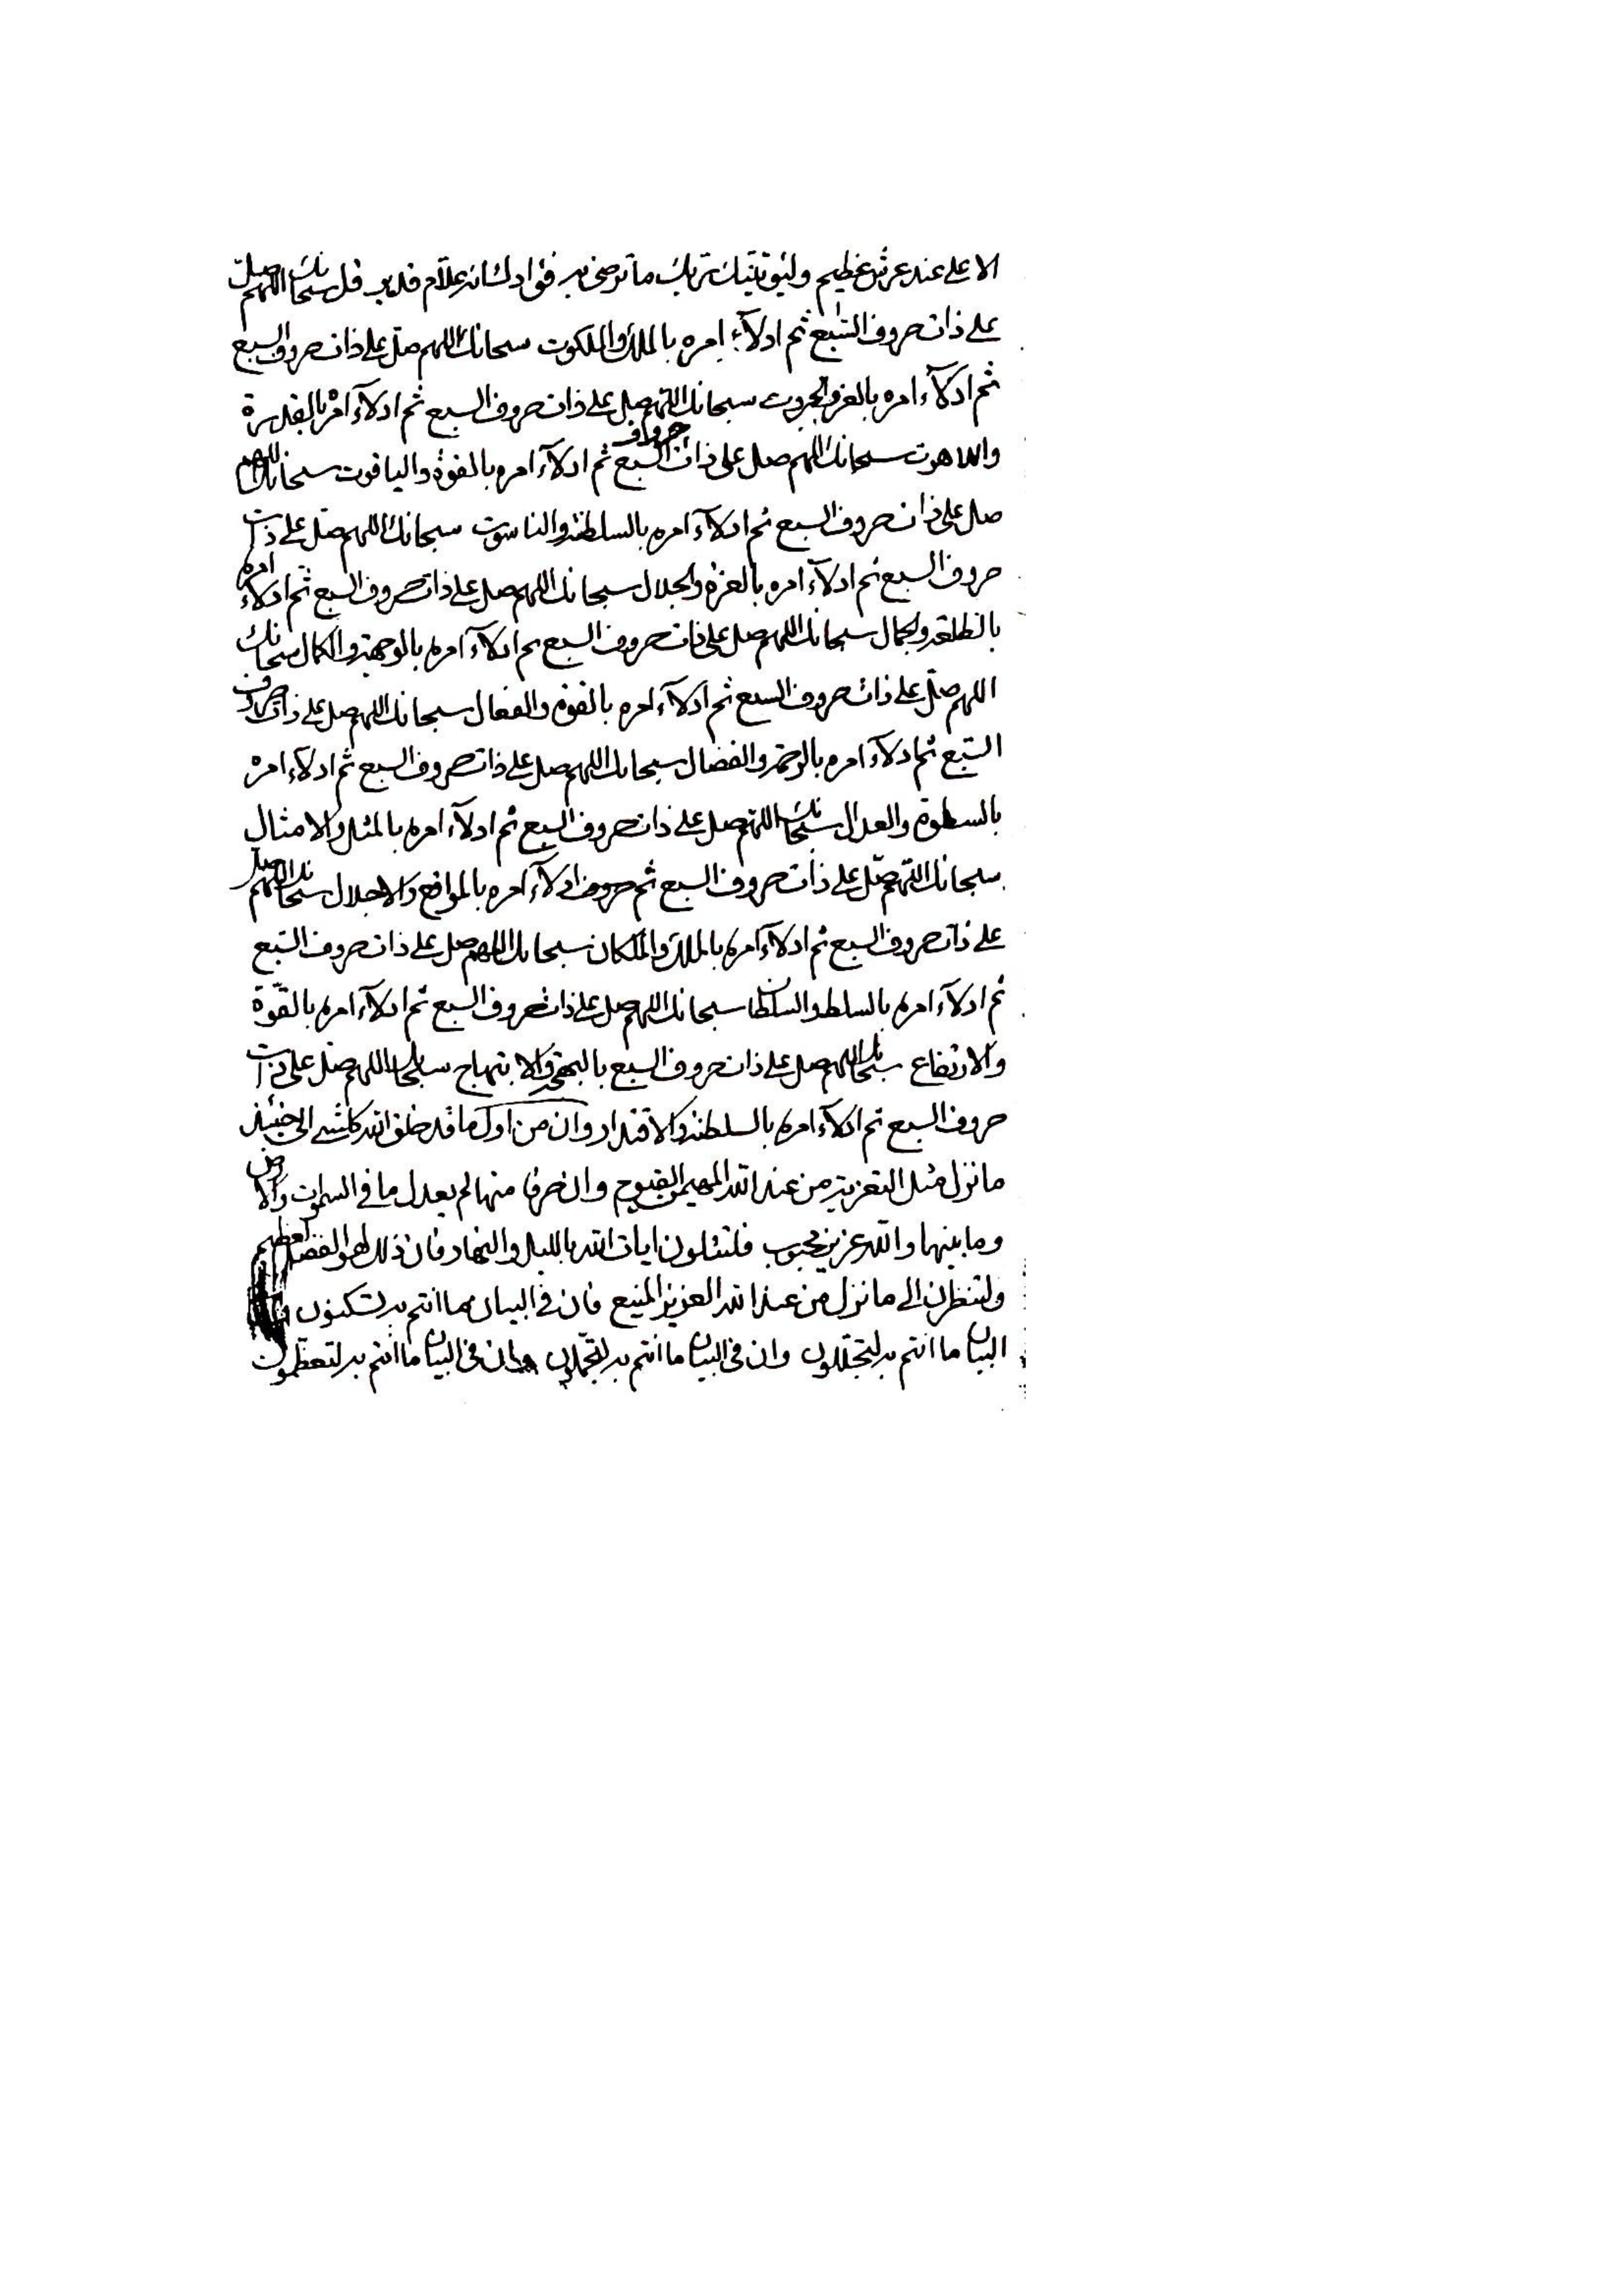 الاعلى عند عرش عظيم وليؤتينك ربك ما ترضى به فؤادك انه علام قدير قل سبحانك اللهم صل
على ذات حروف السبع ثم ادلآء امره بالملك والملكوت سبحانك اللهم صل على ذات حروف السبع
ثم ادلآء امره بالعز والجبروت سبحانك اللهم صل على ذات حروف السبع ثم ادلآء امره بالقدرة
واللاهوت سبحانك اللهم صل على ذات حروف السبع ثم ادلآء امره بالقوة والياقوت سبحانك اللهم
صل على ذات حروف السبع ثم ادلآء امره بالسلطنة والناسوت سبحانك اللهم صل على ذات
حروف السبع ثم ادلآء امره بالعزة والجلال سبحانك اللهم صل على ذات حروف السبع ثم ادلآء امره
بالطلعة والجمال سبحانك اللهم صل على ذات حروف السبع ثم ادلآء امره بالوجهة والكمال سبحانك
اللهم صل على ذات حروف السبع ثم ادلآء امره بالقوة والفعال سبحانك اللهم صل على ذات حروف
السبع ثم ادلآء امره بالرحمة والفضال سبحانك اللهم صل على ذات حروف السبع ثم ادلآء امره
بالسطوة والعدال سبحانك اللهم صل على ذات حروف السبع ثم ادلآء امره بالمثل والامثال
سبحانك اللهم صل على ذات حروف السبع ثم حروف ادلآء امره بالمواقع والاجلال سبحانك اللهم صل
على ذات حروف السبع ثم ادلآء امره بالملك والملكان سبحانك اللهم صل على ذات حروف السبع
ثم ادلآء امره بالسلط والسلطان سبحانك اللهم صل على ذات حروف السبع ثم ادلآء امره بالقوة
والارتفاع سبحانك اللهم صل على ذات حروف السبع بالبهجة والابتهاج سبحانك اللهم صل على ذات
حروف السبع ثم ادلآء امره بالسلطنة والاقتدار وان من اول ما قد خلق الله كلشئ الى حينئذ
ما نزل مثل التعزية من عند الله المهيمن القيوم وان حرفا منها لم يعدل ما في السموات والارض
وما بينهما والله عزيز محبوب فلتتلون ايات الله بالليل والنهار فان ذلك لهو الفضل العظيم
ولتنظرن الى ما نزل من عند الله العزيز المنيع فان في البيان ما انتم به لتسكنون
البيان ما انتم به لتجللون وان في البيان ما انتم به لتجملون وان في البيان ما انتم به لتعظمون